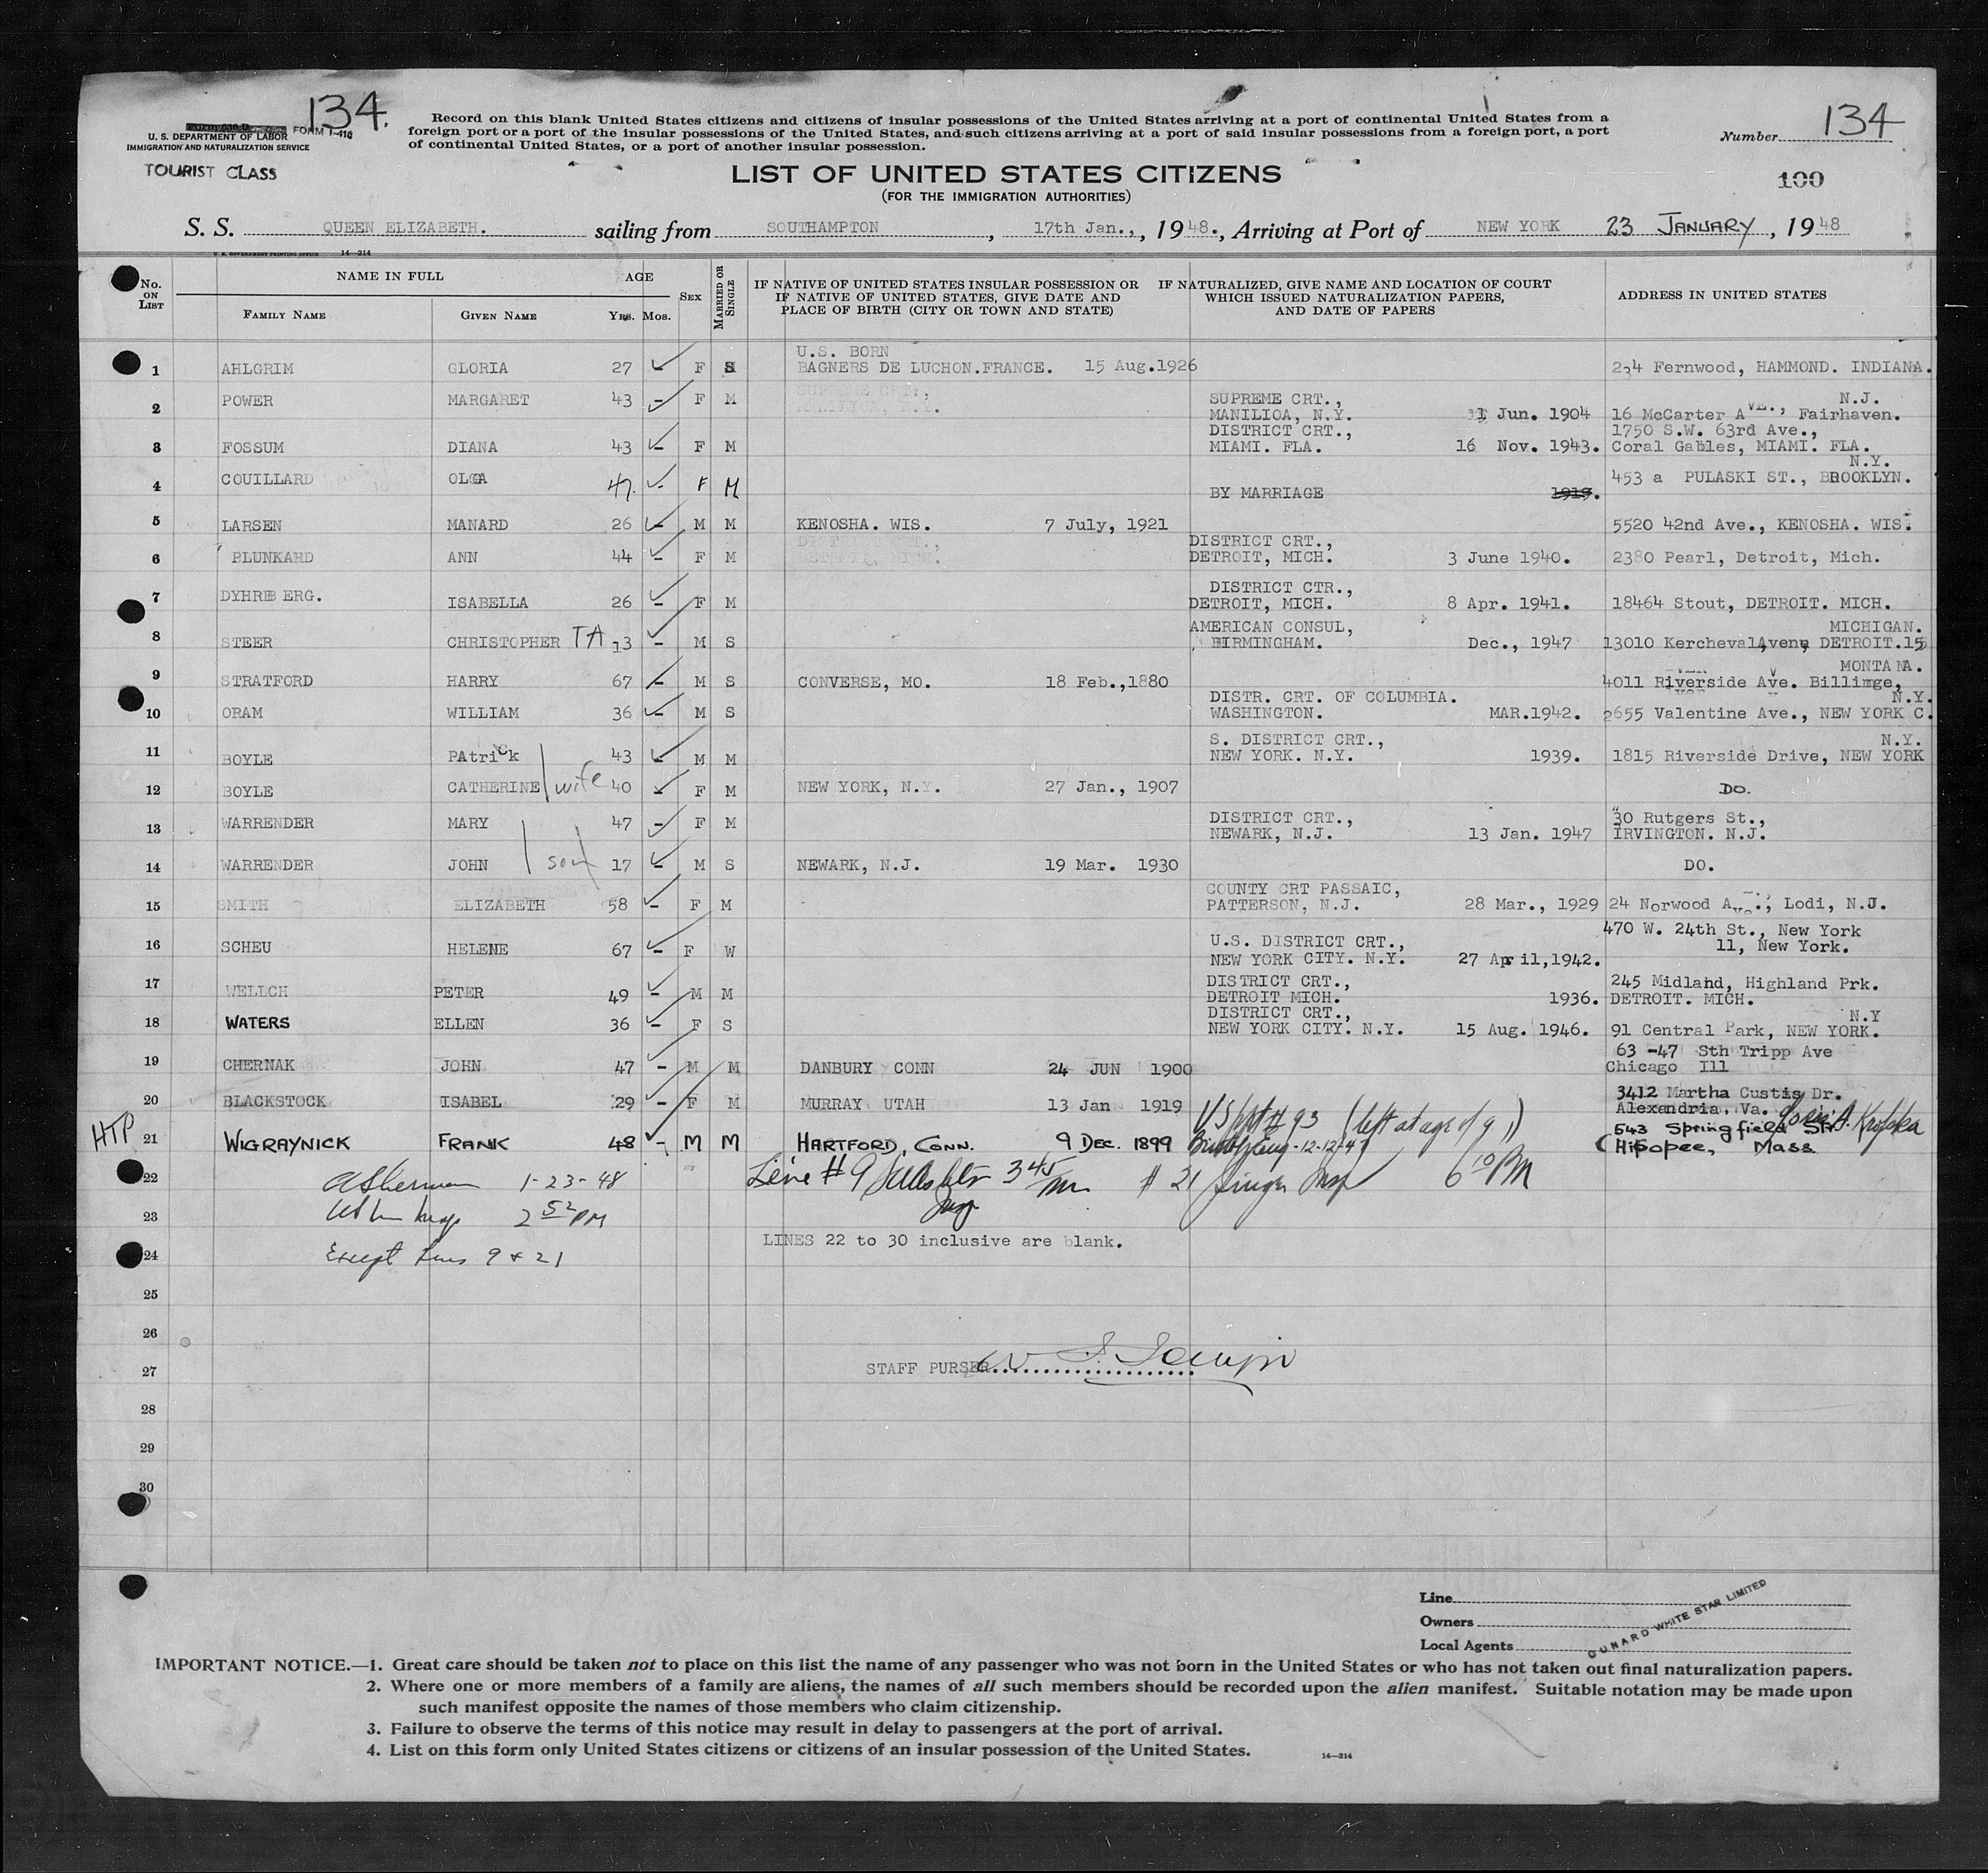 134.
FORM I-416
U. S. DEPARTMENT OF LABOR
IMMIGRATION AND NATURALIZATION SERVICE
TOURIST CLASS
Record on this blank United States citizens and citizens of insular possessions of the United States arriving at a port of continental United States from a
foreign port or a port of the insular possessions of the United States, and such citizens arriving at a port of said insular possessions from a foreign port, a port
of continental United States, or a port of another insular possession.
Number 134
LIST OF UNITED STATES CITIZENS
(FOR THE IMMIGRATION AUTHORITIES)
100
S. S. QUEEN ELIZABETH. sailing from SOUTHAMPTON, 17th Jan., 1948., Arriving at Port of NEW YORK 23 JANUARY, 1948
U. S. GOVERNMENT PRINTING OFFICE 14—214
No. ON LIST
NAME IN FULL
FAMILY NAME GIVEN NAME
AGE
YRS. MOS.
SEX
MARRIED OR SINGLE
IF NATIVE OF UNITED STATES INSULAR POSSESSION OR
IF NATIVE OF UNITED STATES, GIVE DATE AND
PLACE OF BIRTH (CITY OR TOWN AND STATE)
IF NATURALIZED, GIVE NAME AND LOCATION OF COURT
WHICH ISSUED NATURALIZATION PAPERS,
AND DATE OF PAPERS
ADDRESS IN UNITED STATES
U.S. BORN
1 AHLGRIM GLORIA 27 - F S BAGNERS DE LUCHON.FRANCE. 15 Aug.1926 234 Fernwood, HAMMOND. INDIANA.
SUPREME CRT., N.J.
2 POWER MARGARET 43 - F M MANILIOA, N.Y. 1 Jun. 1904 16 McCarter AVE., Fairhaven.
DISTRICT CRT., 1750 S.W. 63rd Ave.,
3 FOSSUM DIANA 43 - F M MIAMI. FLA. 16 Nov. 1943. Coral Gables, MIAMI. FLA.
N.Y.
4 COUILLARD OLGA 47. - F M BY MARRIAGE 1919. 453 a PULASKI ST., BROOKLYN.
5 LARSEN MANARD 26 - M M KENOSHA. WIS. 7 July, 1921 5520 42nd Ave., KENOSHA. WIS.
DISTRICT CRT.,
6 PLUNKARD ANN 44 - F M DETROIT, MICH. 3 June 1940. 2380 Pearl, Detroit, Mich.
DISTRICT CTR.,
7 DYHREBERG. ISABELLA 26 - F M DETROIT, MICH. 8 Apr. 1941. 18464 Stout, DETROIT. MICH.
AMERICAN CONSUL, MICHIGAN.
8 STEER CHRISTOPHER TA 13 - M S BIRMINGHAM. Dec., 1947 13010 Kercheval,Avene, DETROIT.15
MONTANA.
9 STRATFORD HARRY 67 - M S CONVERSE, MO. 18 Feb.,1880 4011 Riverside Ave. Billimge,
DISTR. CRT. OF COLUMBIA. N.Y.
10 ORAM WILLIAM 36 - M S WASHINGTON. MAR.1942. 2655 Valentine Ave., NEW YORK C.
S. DISTRICT CRT., N.Y.
11 BOYLE PAtrick 43 - M M NEW YORK. N.Y. 1939. 1815 Riverside Drive, NEW YORK
12 BOYLE CATHERINE wife 40 - F M NEW YORK, N.Y. 27 Jan., 1907 DO.
DISTRICT CRT., 30 Rutgers St.,
13 WARRENDER MARY 47 - F M NEWARK, N.J. 13 Jan. 1947 IRVINGTON. N.J.
14 WARRENDER JOHN son 17 - M S NEWARK, N.J. 19 Mar. 1930 DO.
COUNTY CRT PASSAIC,
15 SMITH ELIZABETH 58 - F M PATTERSON, N.J. 28 Mar., 1929 24 Norwood Ave., Lodi, N.J.
470 W. 24th St., New York
16 SCHEU HELENE 67 - F W U.S. DISTRICT CRT., 11, New York.
NEW YORK CITY. N.Y. 27 April,1942.
DISTRICT CRT., 245 Midland, Highland Prk.
17 WELLCH PETER 49 - M M DETROIT MICH. 1936. DETROIT. MICH.
DISTRICT CRT., N.Y
18 WATERS ELLEN 36 - F S NEW YORK CITY. N.Y. 15 Aug. 1946. 91 Central Park, NEW YORK.
63 -47 Sth Tripp Ave
19 CHERNAK JOHN 47 - M M DANBURY CONN 24 JUN 1900 Chicago Ill
3412 Martha Custis Dr.
20 BLACKSTOCK ISABEL 29 - F M MURRAY UTAH 13 Jan 1919 Alexandria, Va.
543 Springfield Str
HTP 21 WIGRAYNICK FRANK 48 - M M HARTFORD, CONN. 9 DEC. 1899 (left at age of 9) Mass
22 1-23-48 Line #9 3 45 PM # 21 Insp 6 10 PM
23 2 52 PM
24 Except lines 9 & 21
LINES 22 to 30 inclusive are blank.
25
26
27 STAFF PURSER
28
29
30
Line
Owners
Local Agents
CUNARD WHITE STAR LIMITED
IMPORTANT NOTICE.—1. Great care should be taken not to place on this list the name of any passenger who was not born in the United States or who has not taken out final naturalization papers.
2. Where one or more members of a family are aliens, the names of all such members should be recorded upon the alien manifest. Suitable notation may be made upon
such manifest opposite the names of those members who claim citizenship.
3. Failure to observe the terms of this notice may result in delay to passengers at the port of arrival.
4. List on this form only United States citizens or citizens of an insular possession of the United States.
14—214